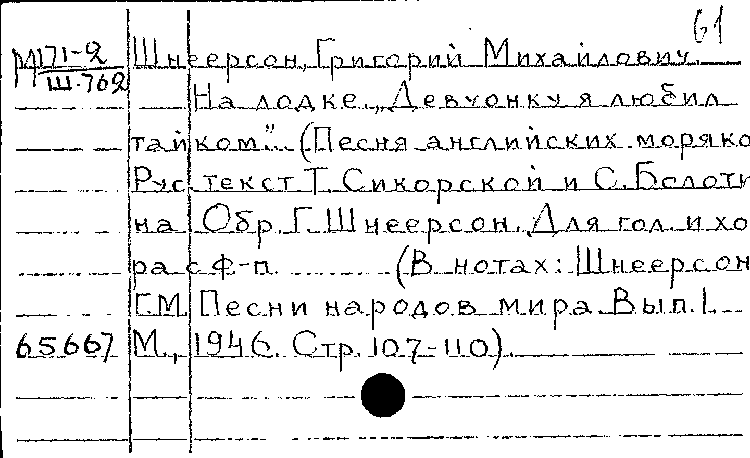 61
М171-2 Шнеерсон, Григорий Михайлович.
Ш.762 На лодке. „Девчонку я любил
тайком". (Песня английских моряко
Рус. текст Т. Сикорской и С. Болоти
на Обр. Г. Шнеерсон. Для гол. и хо
ра с ф-п. (В нотах: Шнеерсон
Г.М. Песни народов мира. Вып. 1.
65667 М., 1946. Стр. 107-110).